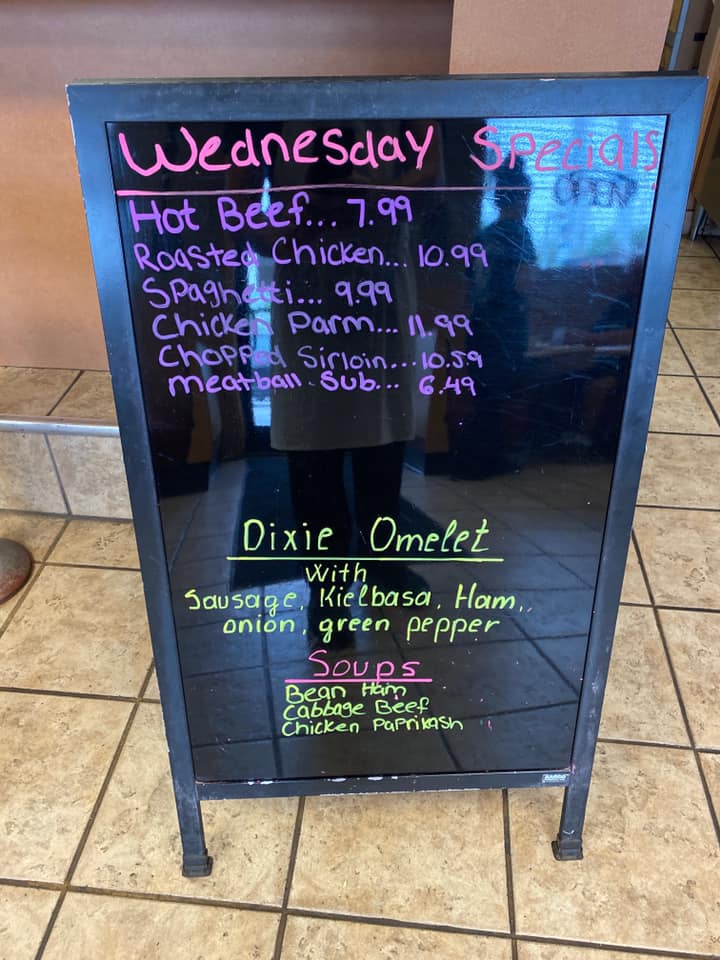 Wednesday Specials
OPEN
Hot Beef... 7.99
Roasted Chicken... 10.99
Spaghetti... 9.99
Chicken Parm... 11.99
Chopped Sirloin... 10.59
meatball Sub... 6.49
Dixie Omelet
with
Sausage, Kielbasa, Ham,,
onion, green pepper
Soups
Bean Ham
Cabbage Beef
Chicken Paprikash